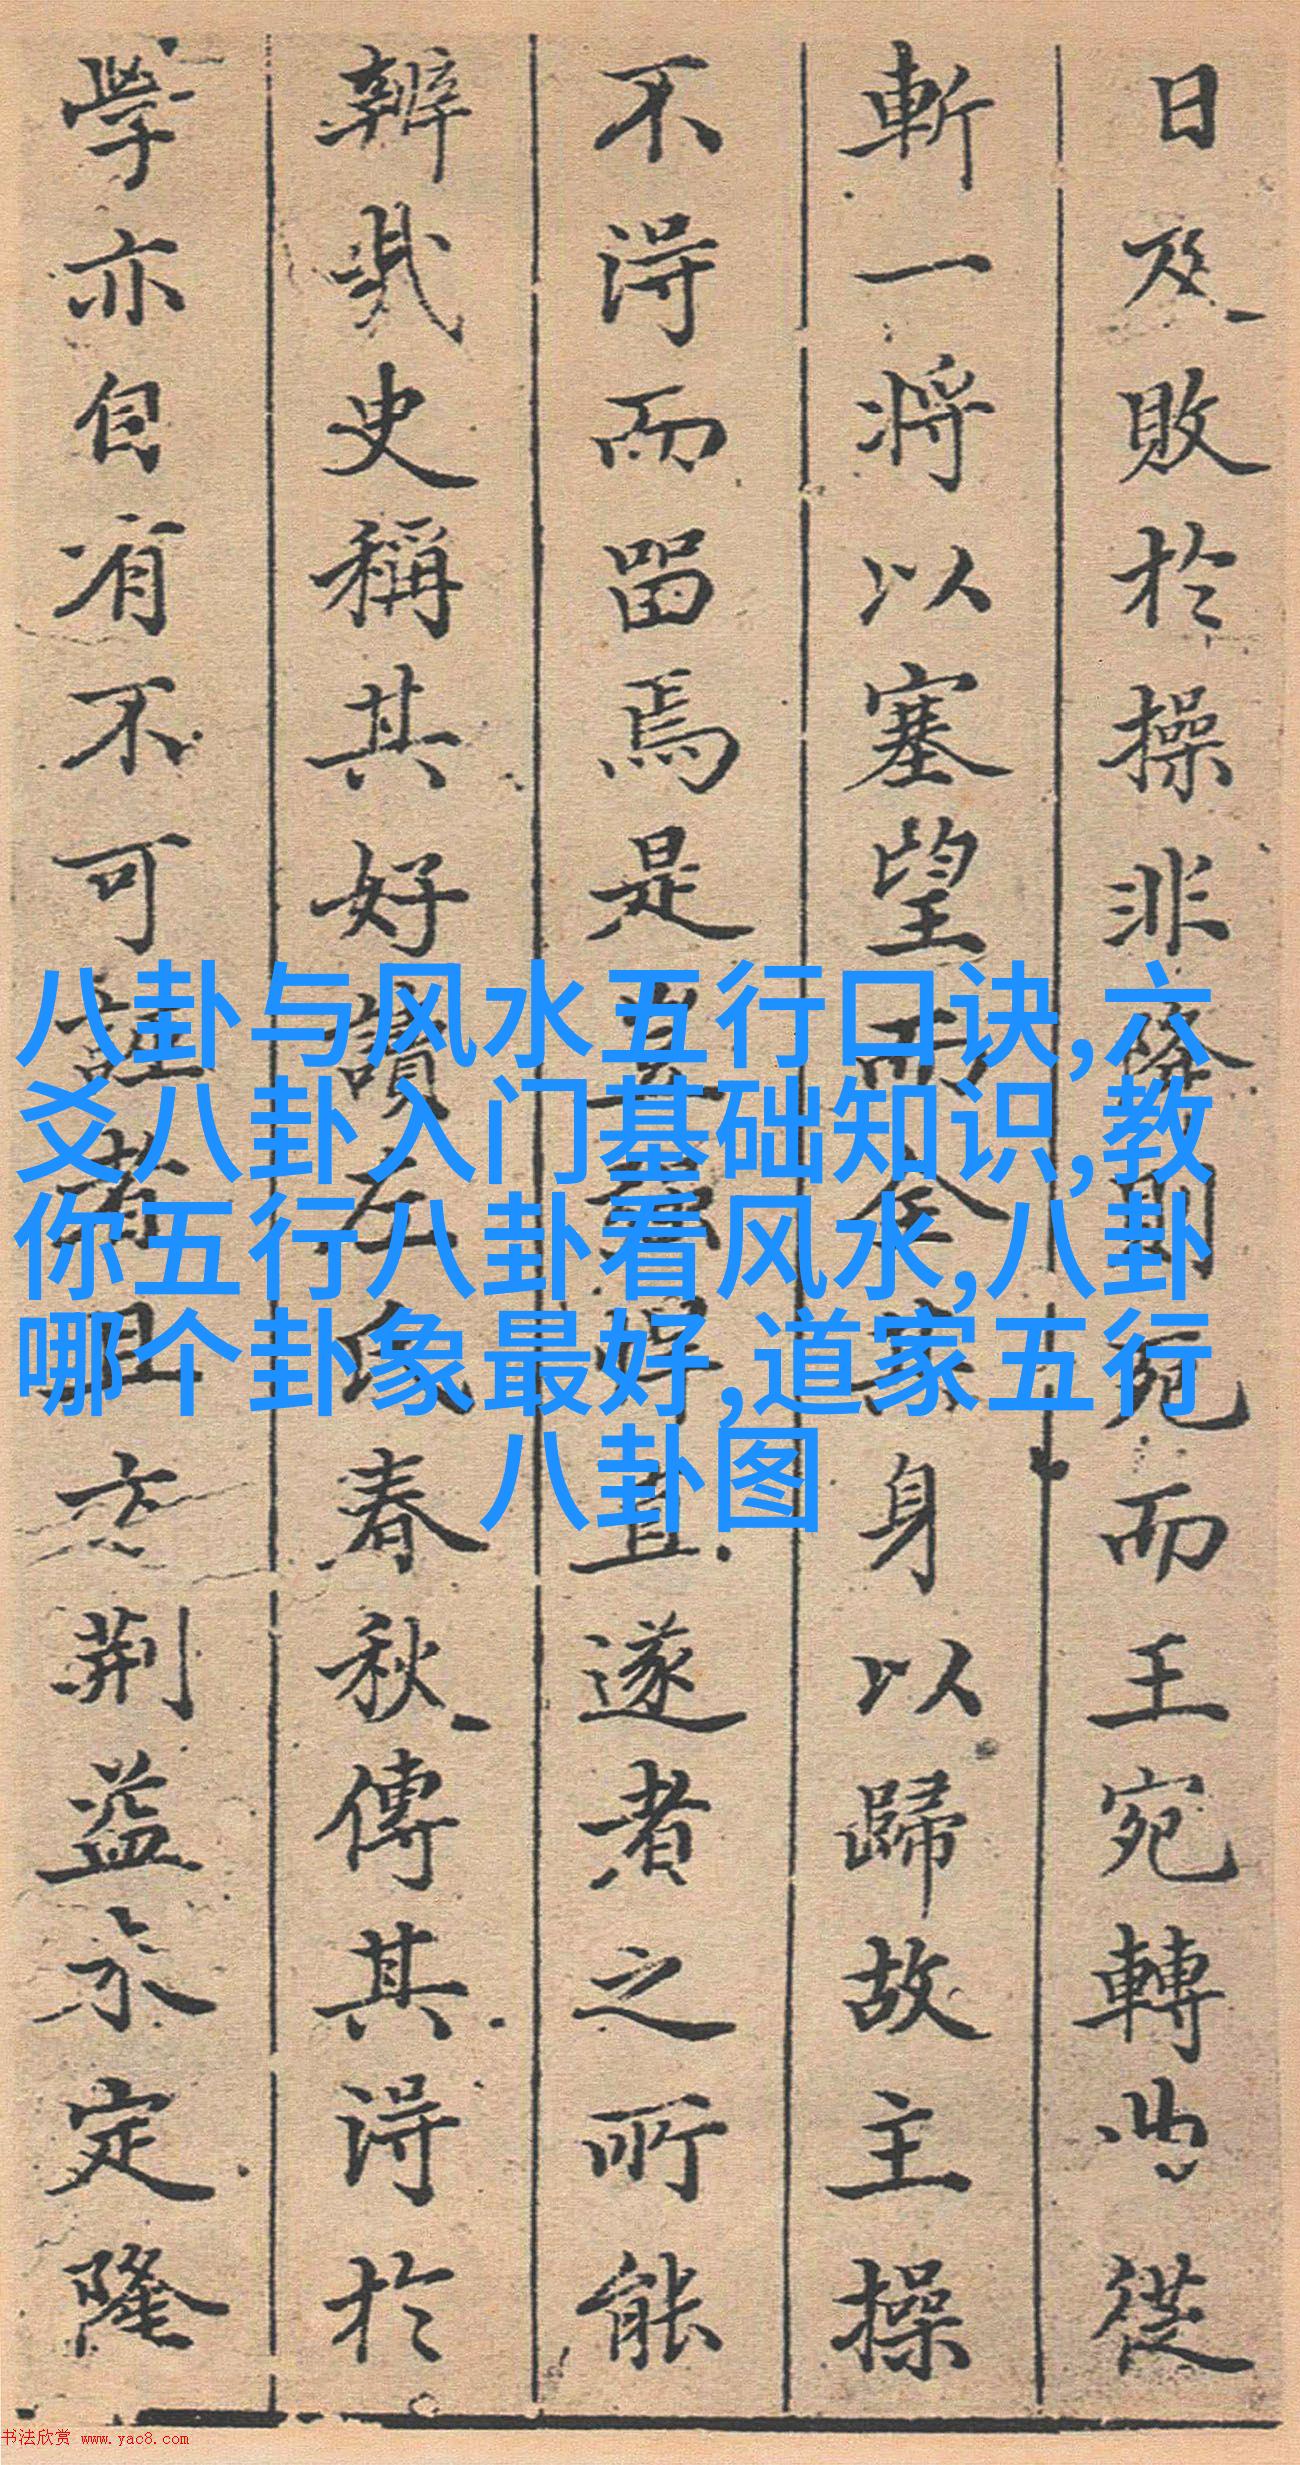 日及敗於操非降則死而王宛轉曲從
斬一将以塞望而全其身以歸故主操
不得而留焉是豈獨悻直遂者之所能
辨哉史稱其好讀左氏春秋傳其得於
學亦自有不可誣者且立荆益未定隆
八卦与风水五行口诀,六
爻八卦入门基础知识,教
你五行八卦看风水,八卦
哪个卦象最好,道家五行
八卦图
书法欣赏 www.yac8.com